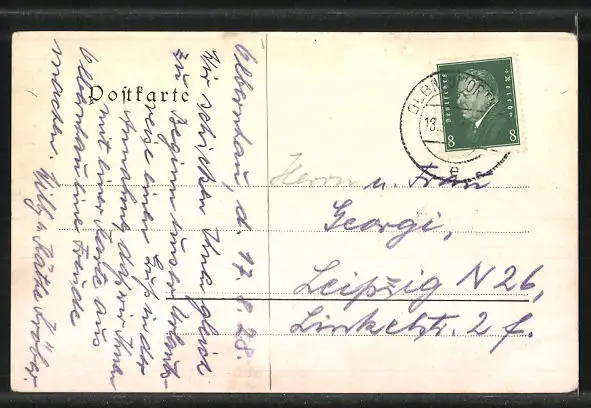 Postkarte
Olbernhau, d. 17.8.28.
Wir schicken Ihnen gleich
zu Beginn unsrer Urlaubs-
reise einen Gruß in der
Annahme, daß wir Ihnen
mit einer Karte aus
Olbernhau eine Freude
machen. Willy u. Käthe
Herrn u. Frau
Georgi,
Leipzig N 26,
Linkelstr. 2 f.
Deutsches Reich
8 8
OLBERNHAU
18.
e